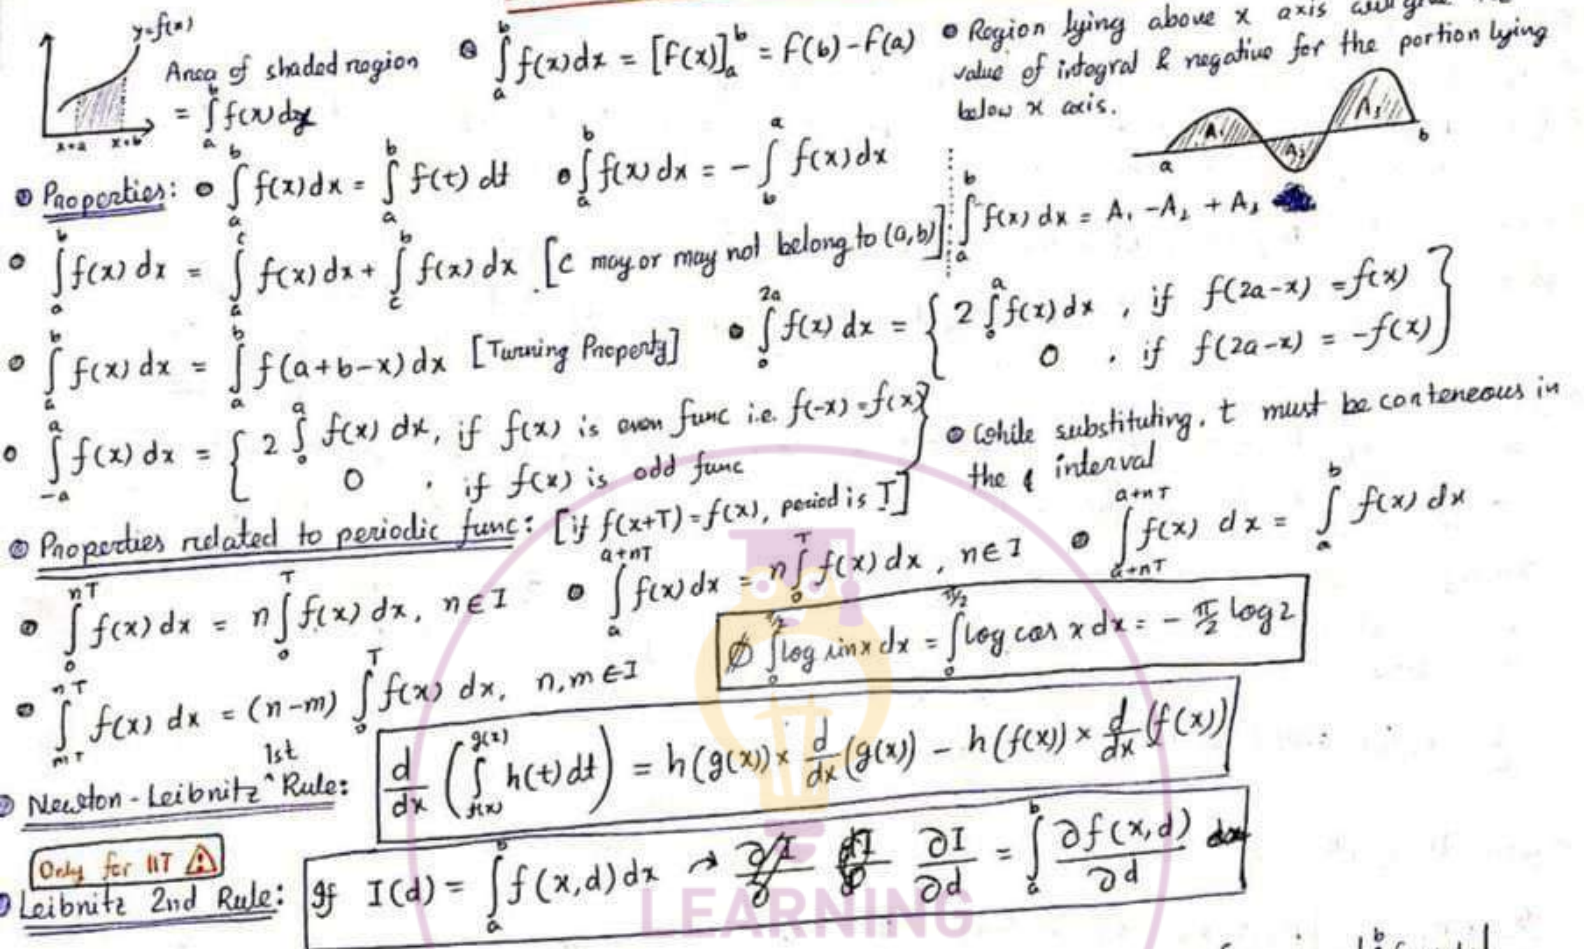 y=f(x)
Area of shaded region
= ∫_a^b f(x) dx
x=a x=b
∫_a^b f(x) dx = [F(x)]_a^b = F(b) - F(a)
Region lying above x axis will
value of integral & negative for the portion lying
below x axis.
A₁ A₂ A₃
a b
∫_a^b f(x) dx = A₁ - A₂ + A₃
Properties: ∫_a^b f(x) dx = ∫_a^b f(t) dt
∫_a^b f(x) dx = - ∫_b^a f(x) dx
∫_a^b f(x) dx = ∫_a^c f(x) dx + ∫_c^b f(x) dx [c may or may not belong to (a,b)]
∫_a^b f(x) dx = ∫_a^b f(a+b-x) dx [Turning Property]
∫_0^{2a} f(x) dx = { 2 ∫_0^a f(x) dx , if f(2a-x) = f(x)
0 , if f(2a-x) = -f(x) }
∫_{-a}^a f(x) dx = { 2 ∫_0^a f(x) dx, if f(x) is even func i.e. f(-x) = f(x)
0 , if f(x) is odd func }
While substituting, t must be conteneous in
the interval
Properties related to periodic func: [if f(x+T) = f(x), period is T]
∫_0^{nT} f(x) dx = n ∫_0^T f(x) dx, n ∈ I
∫_a^{a+nT} f(x) dx = n ∫_0^T f(x) dx , n ∈ I
∫_{a+nT}^{a+nT} f(x) dx = ∫_a^b f(x) dx
∫_0^{π/2} log sinx dx = ∫_0^{π/2} log cos x dx = - π/2 log 2
∫_{mT}^{nT} f(x) dx = (n-m) ∫_0^T f(x) dx, n,m ∈ I
Newton-Leibnitz 1st Rule: d/dx ( ∫_{f(x)}^{g(x)} h(t) dt ) = h(g(x)) × d/dx (g(x)) - h(f(x)) × d/dx (f(x))
Only for IIT ⚠
Leibnitz 2nd Rule: If I(d) = ∫_a^b f(x,d) dx → ∂I/∂d = ∫_a^b ∂f(x,d)/∂d dx
LEARNING